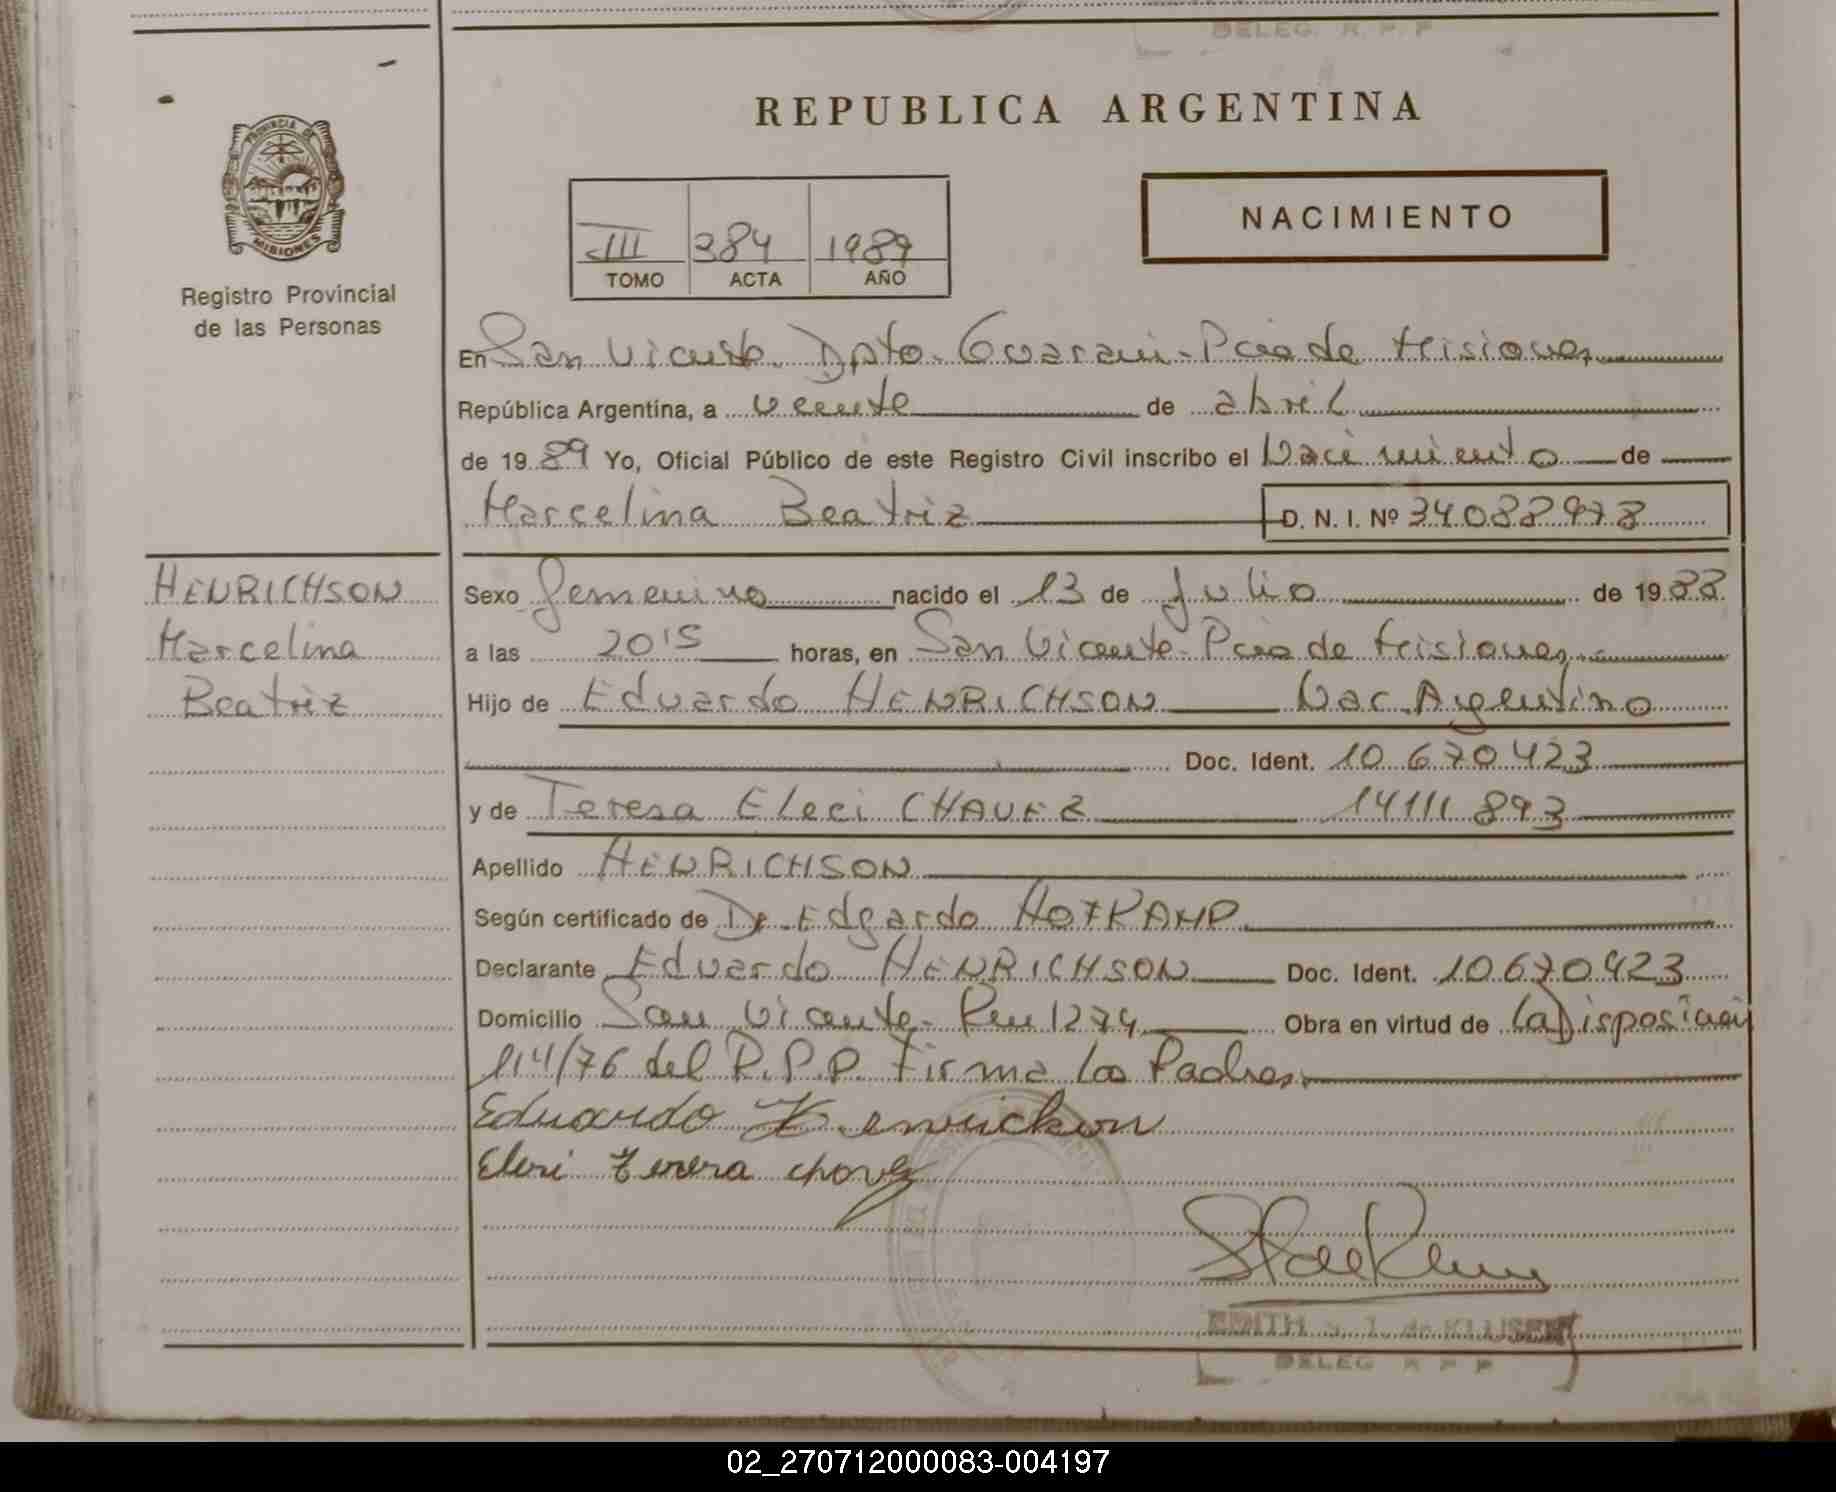 BELEG. R. P. P
REPUBLICA ARGENTINA
PROVINCIA DE
MISIONES
Registro Provincial
de las Personas
NACIMIENTO
III 384 1989
TOMO ACTA AÑO
En San Vicente Dpto. Guarani - Pcia de Misiones
República Argentina, a veinte de abril
de 19 89 Yo, Oficial Público de este Registro Civil inscribo el Nacimiento de
Marcelina Beatriz D. N. I. Nº 34088978
HENRICHSON
Marcelina
Beatriz
Sexo femenino nacido el 13 de Julio de 19 88
a las 20'15 horas, en San Vicente - Pcia de Misiones
Hijo de Eduardo HENRICHSON Nac. Argentino
Doc. Ident. 10 670 423
y de Teresa Eleci CHAVEZ 14111 893
Apellido HENRICHSON
Según certificado de Dr. Edgardo HOFKAMP
Declarante Eduardo HENRICHSON Doc. Ident. 10 670 423
Domicilio San Vicente - Km 1274 Obra en virtud de la Disposición
114/76 del R.P.P. Firma los Padres
Eduardo Henrichson
Eleci Teresa chavez
EDITH S. T. de KLUSENER
DELEG R P P
02_270712000083-004197